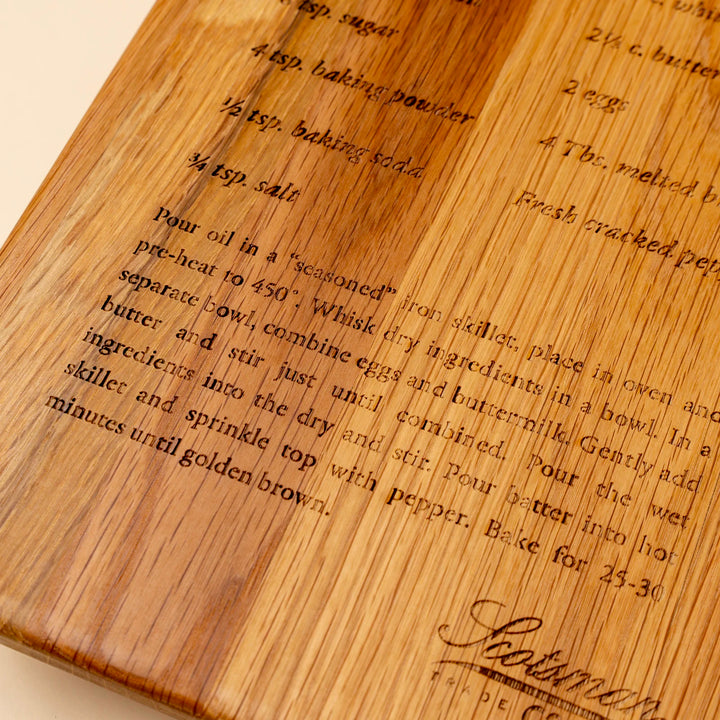 tsp. sugar
4 tsp. baking powder
½ tsp. baking soda
¾ tsp. salt
2¼ c. butter
2 eggs
4 Tbs. melted
Fresh cracked
Pour oil in a "seasoned" iron skillet, place in oven and
pre-heat to 450°. Whisk dry ingredients in a bowl. In a
separate bowl, combine eggs and buttermilk. Gently add
butter and stir just until combined. Pour the wet
ingredients into the dry and stir. Pour batter into hot
skillet and sprinkle top with pepper. Bake for 25-30
minutes until golden brown.
Scotsman
TRADE